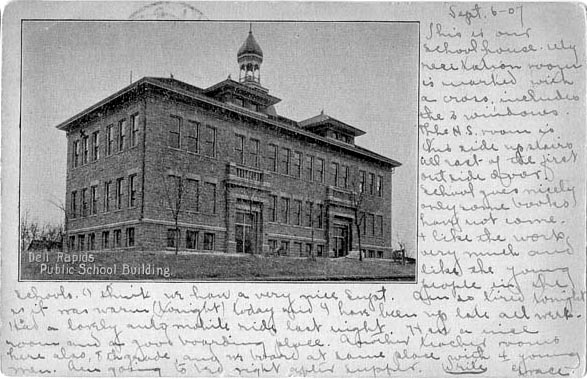 Sept. 6-07
This is our
school house. My
recitation room
is marked with
a cross, includes
the 2 windows.
The H.S. room is
this side up stairs
all east of the first
outside door.
School goes nicely
only some books
have not come.
I like the work
very much and
like the young
people in the
Dell Rapids
Public School Building.
schools. I think we have a very nice Supt. Am so tired tonight
as it was warm (tonight) today and I have been up late all week.
Had a lovely automobile ride last night. Have a nice
room and a good boarding place. Another teacher rooms
here also, and we board at same place with 4 young
men. Am going to bed right after supper. Write Grace.